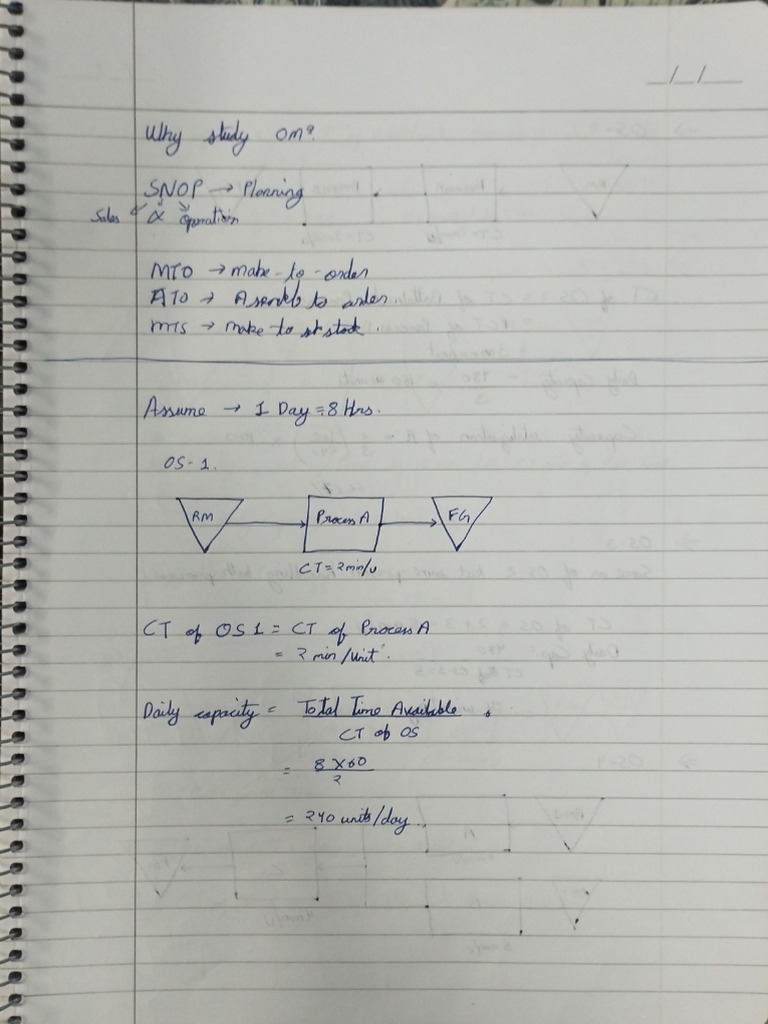 Why study OM?
SNOP → Planning
Sales & Operation
MTO → make-to-order
ATO → to order
MTS → make to stock.
Assume → 1 Day = 8 Hrs.
OS-1.
RM Process A FG
CT = 2min/u
CT of OS 1 = CT of Process A
= 2 min/unit.
Daily capacity = Total Time Available
CT of OS
= 8 X 60
2
= 240 units/day.